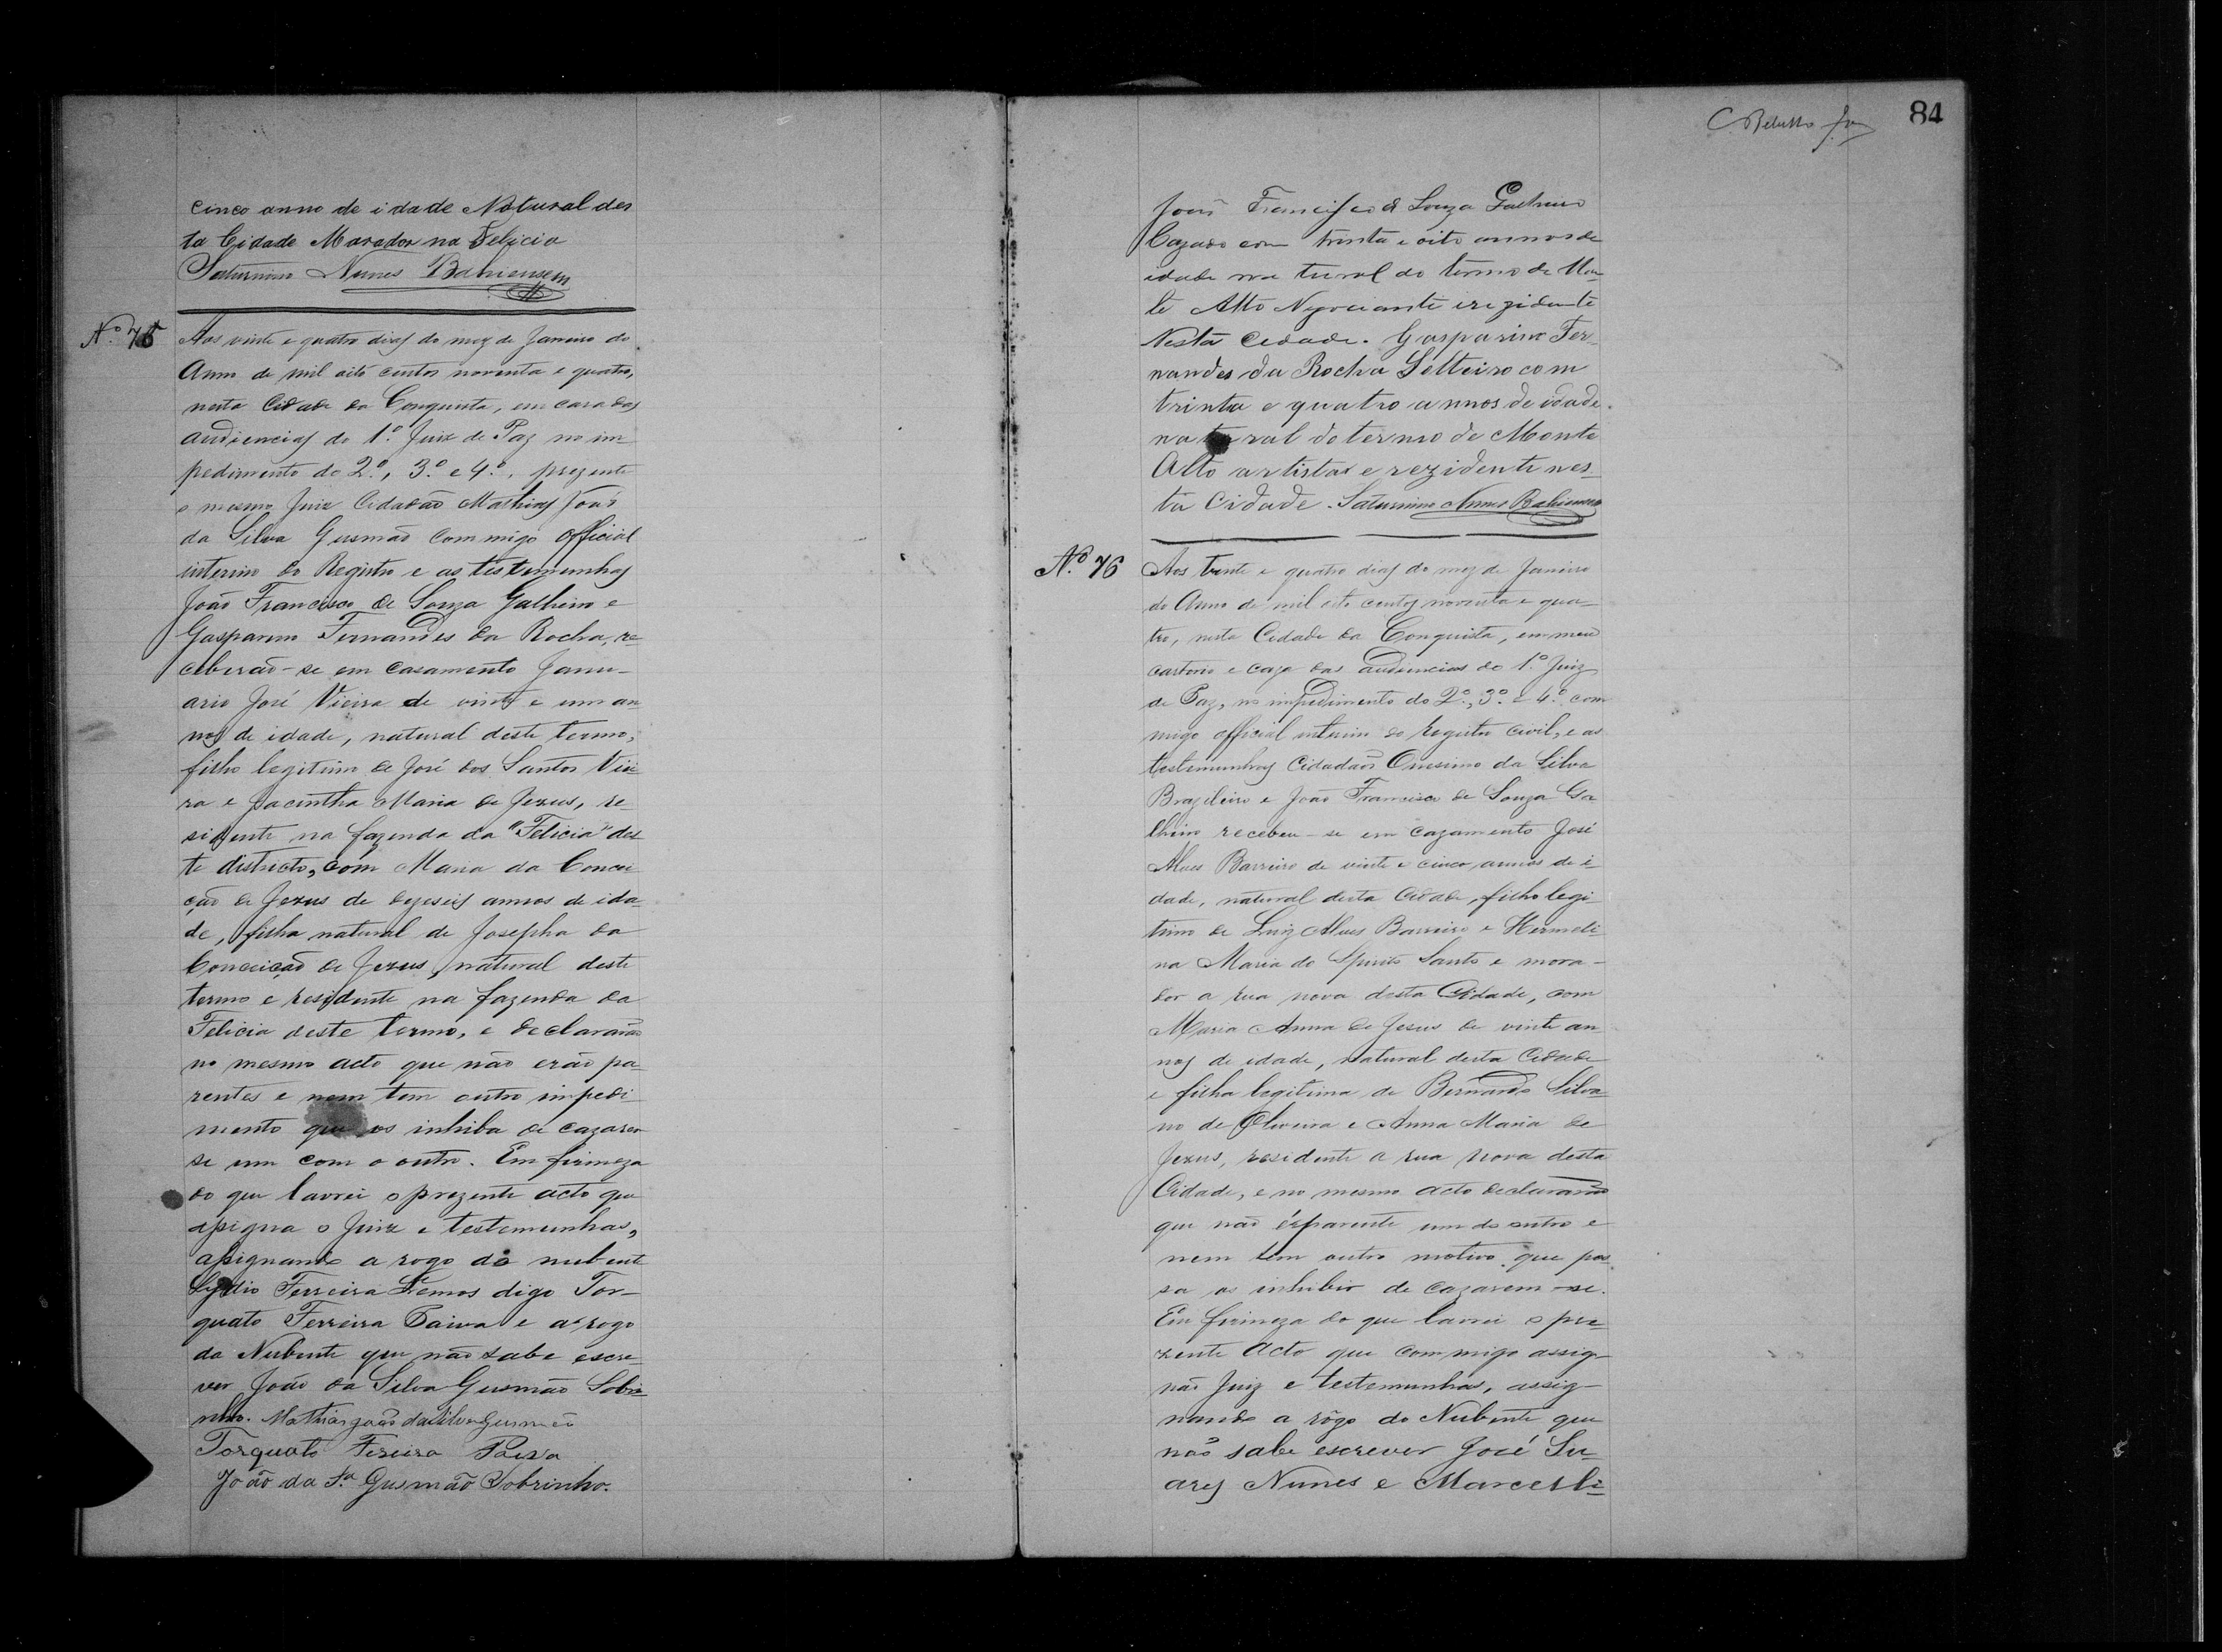 cinco anno de idade Natural des
ta Cidade Marador na Felicia
Saturnino Nunes Bahiensem
Nº. 75
Aos vinte e quatro dias do mez de Janeiro do
Anno de mil oito centos noventa e quatro,
nesta Cidade da Conquista, em casa das
audiencias do 1º. Juiz de Paz no im
pedimento do 2º., 3º. e 4º., prezente
o mesmo Juiz Cidadão Mathias João
da Silva Gusmão commigo official
interino do Registro e as testemunhas
João Francisco de Souza Galheiro e
Gasparino Fernandes da Rocha, re
ceberão-se em casamento Janu-
ario José Vieira de vinte e um an
nos de idade, natural deste termo,
filho legitimo de José dos Santos Viei
ra e Jacintha Maria de Jezus, re-
sidente na fazenda da "Felicia" des
te districto, com Maria da Concei
ção de Jezus de dezeseis annos de ida-
de, filha natural de Josepha da
Conceição de Jezus, natural deste
termo e residente na fazenda da
Felicia deste termo, e declararão
no mesmo acto que não erão pa-
rentes e nem tem outro impedi-
mento que os inhiba de cazarem
se um com o outro. Em firmeza
do que lavrei o prezente acto que
assigna o Juiz e testemunhas,
assignando a rogo do nubente
Lydio Ferreira Lemos digo Tor-
quato Ferreira Paiva e a rogo
da Nubente que não sabe escre-
ver João da Silva Gusmão Sobri-
nho. Mathias João da Silva Gusmão
Torquato Fereira Paiva
João da Sª. Gusmão Sobrinho.
84
João Francisco de Souza Galheiro
Cazado com trinta e oito annos de
idade natural do termo de Mon
te Alto Negociante e rezidente
Nesta Cedade. Gasparino Fer-
nandes da Rocha Solteiro com
trinta e quatro annos de idade.
natural do termo de Monte
Alto artista e rezidente nes-
ta Cidade. Saturnino Nunes Bahiense
Nº. 76
Aos vinte e quatro dias do mez de Janeiro
do Anno de mil oito centos noventa e qua-
tro, nesta Cidade da Conquista, em meu
cartorio e caza das audiencias do 1º. Juiz
de Paz, no impedimento do 2º., 3º. e 4º. com
migo official interino do Registro Civil, e as
testemunhas Cidadãos Onesimo da Silva
Brazileiro e João Francisco de Souza Ga
lheiro recebeu-se em cazamento José
Alves Barreiro de vinte e cinco annos de i
dade, natural desta Cidade, filho legi
timo de Luiz Alves Barreiro e Hermeli
na Maria do Spirito Santo e mora-
dor a rua nova desta Cidade, com
Maria Anna de Jesus de vinte an
nos de idade, natural desta Cidade
e filha legitima de Bernardo Silva
no de Oliveira e Anna Maria de
Jezus, residente a rua Nova desta
Cidade, e no mesmo acto declararão
que não é parente um do outro e
nem tem outro motivo que pos
sa os inhibir de cazarem-se.
Em firmeza do que lavrei o pre
zente Acto que commigo assig-
não Juiz e testemunhas, assig-
nando a rôgo do Nubente que
não sabe escrever José Su-
ares Nunes e Marcelli-